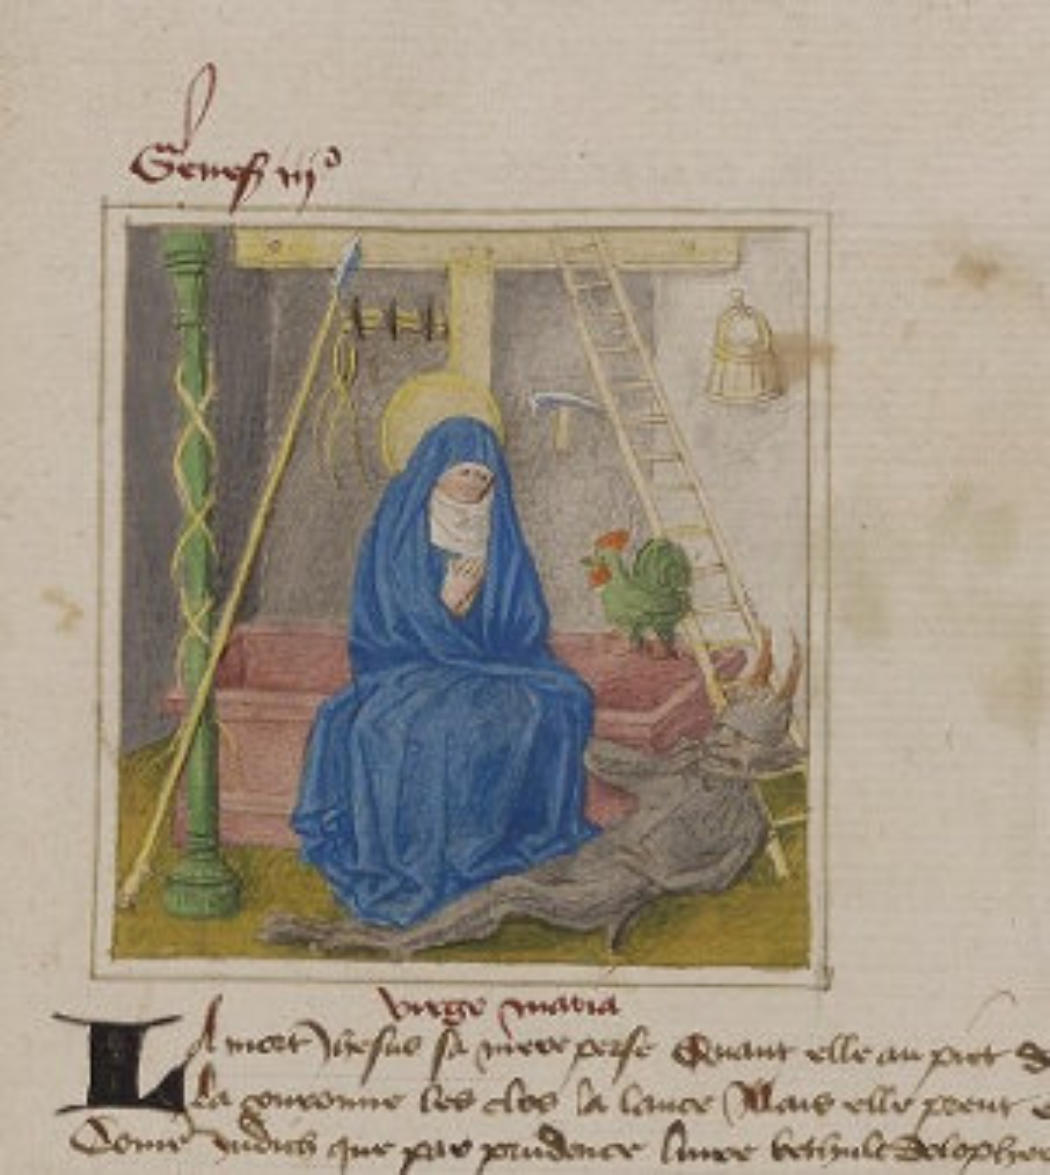 Genesis iijº
virgo maria
La mort Jhesus sa mere perse Quant elle au piet d
La couronne les clos la lance Mais elle prent
Come Judich que par prudence